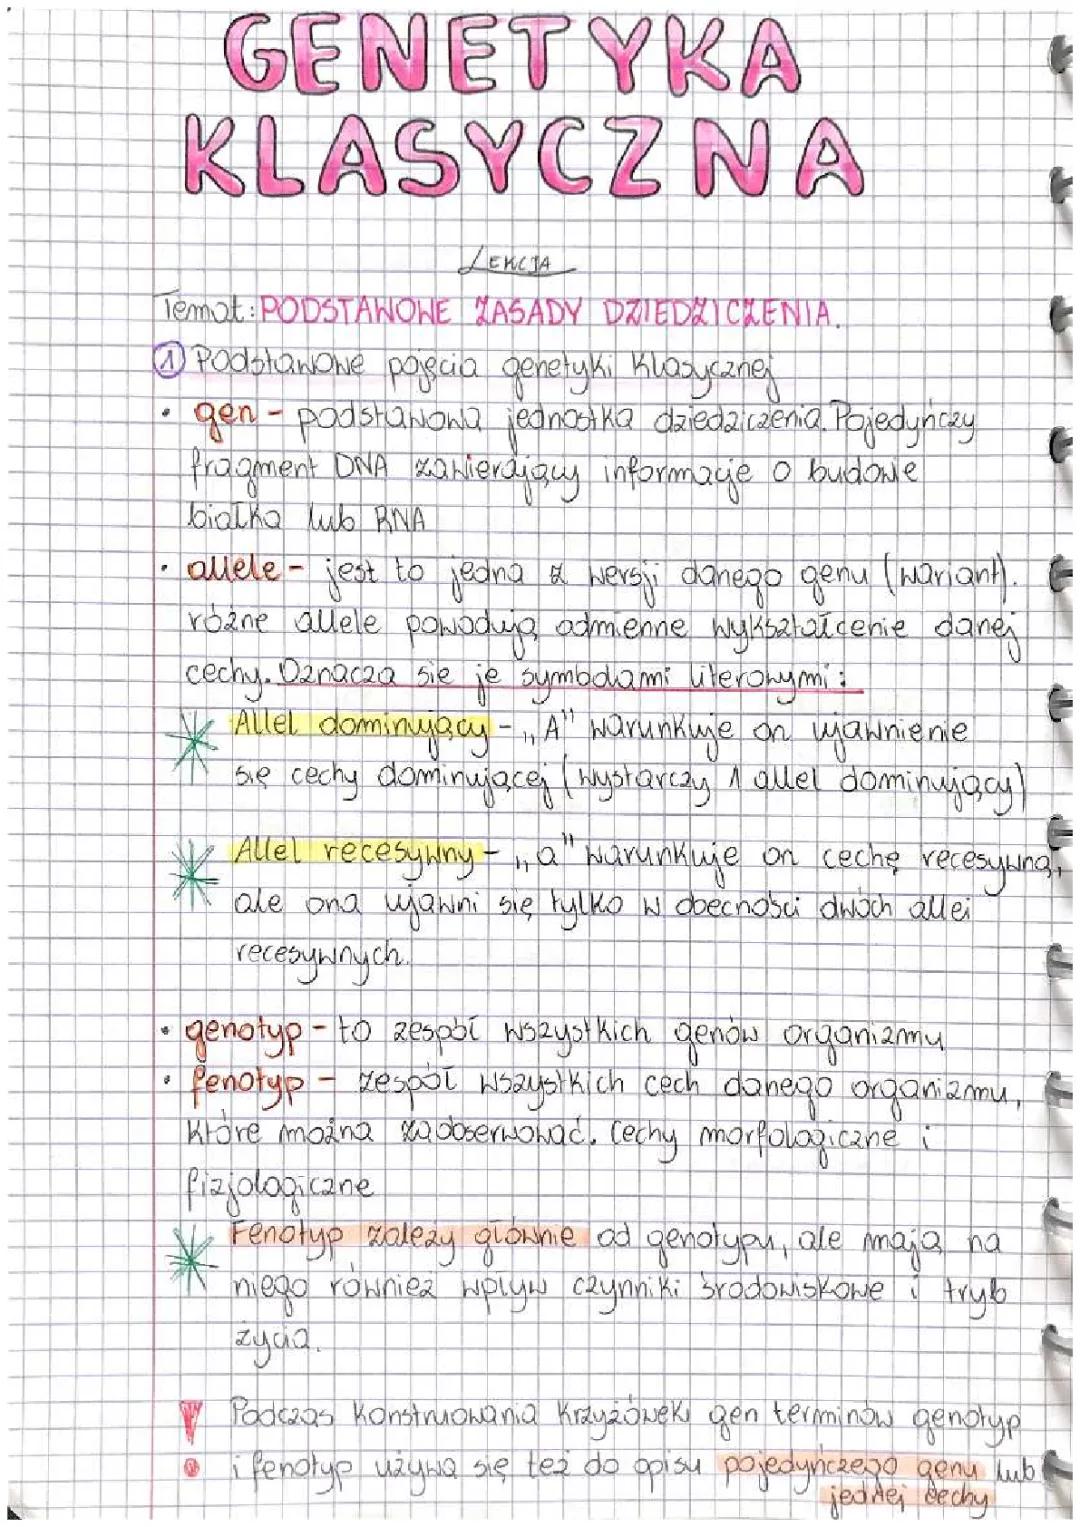 GENETYKA
KLASYCZNA
LEKCJA
Temat: PODSTAWOWE ZASADY DZIEDZICZENIA.
1 Podstawowe pojęcia genetyki klasycznej
• gen - podstawowa jednostka dziedziczenia. Pojedyńczy
fragment DNA zawierający informacje o budowie
białka lub RNA
• allele - jest to jedna z wersji danego genu (wariant).
różne allele powodują odmienne wykształcenie danej
cechy. Oznacza sie je symbolami literowymi:
Allel dominujący - „A" warunkuje on ujawnienie
się cechy dominującej (wystarczy 1 allel dominujący)
Allel recesywny - „a" warunkuje on cechę recesywną,
ale ona ujawni się tylko w obecności dwóch allei
recesywnych.
• genotyp - to zespół wszystkich genów organizmu
• fenotyp - zespół wszystkich cech danego organizmu,
które można zaobserwować. Cechy morfologiczne i
fizjologiczne
Fenotyp zależy głównie od genotypu, ale mają na
niego również wpływ czynniki środowiskowe i tryb
życia.
Podczas konstruowania krzyżówek gen terminów genotyp
i fenotyp używa się też do opisu pojedyńczego genu lub
jednej cechy